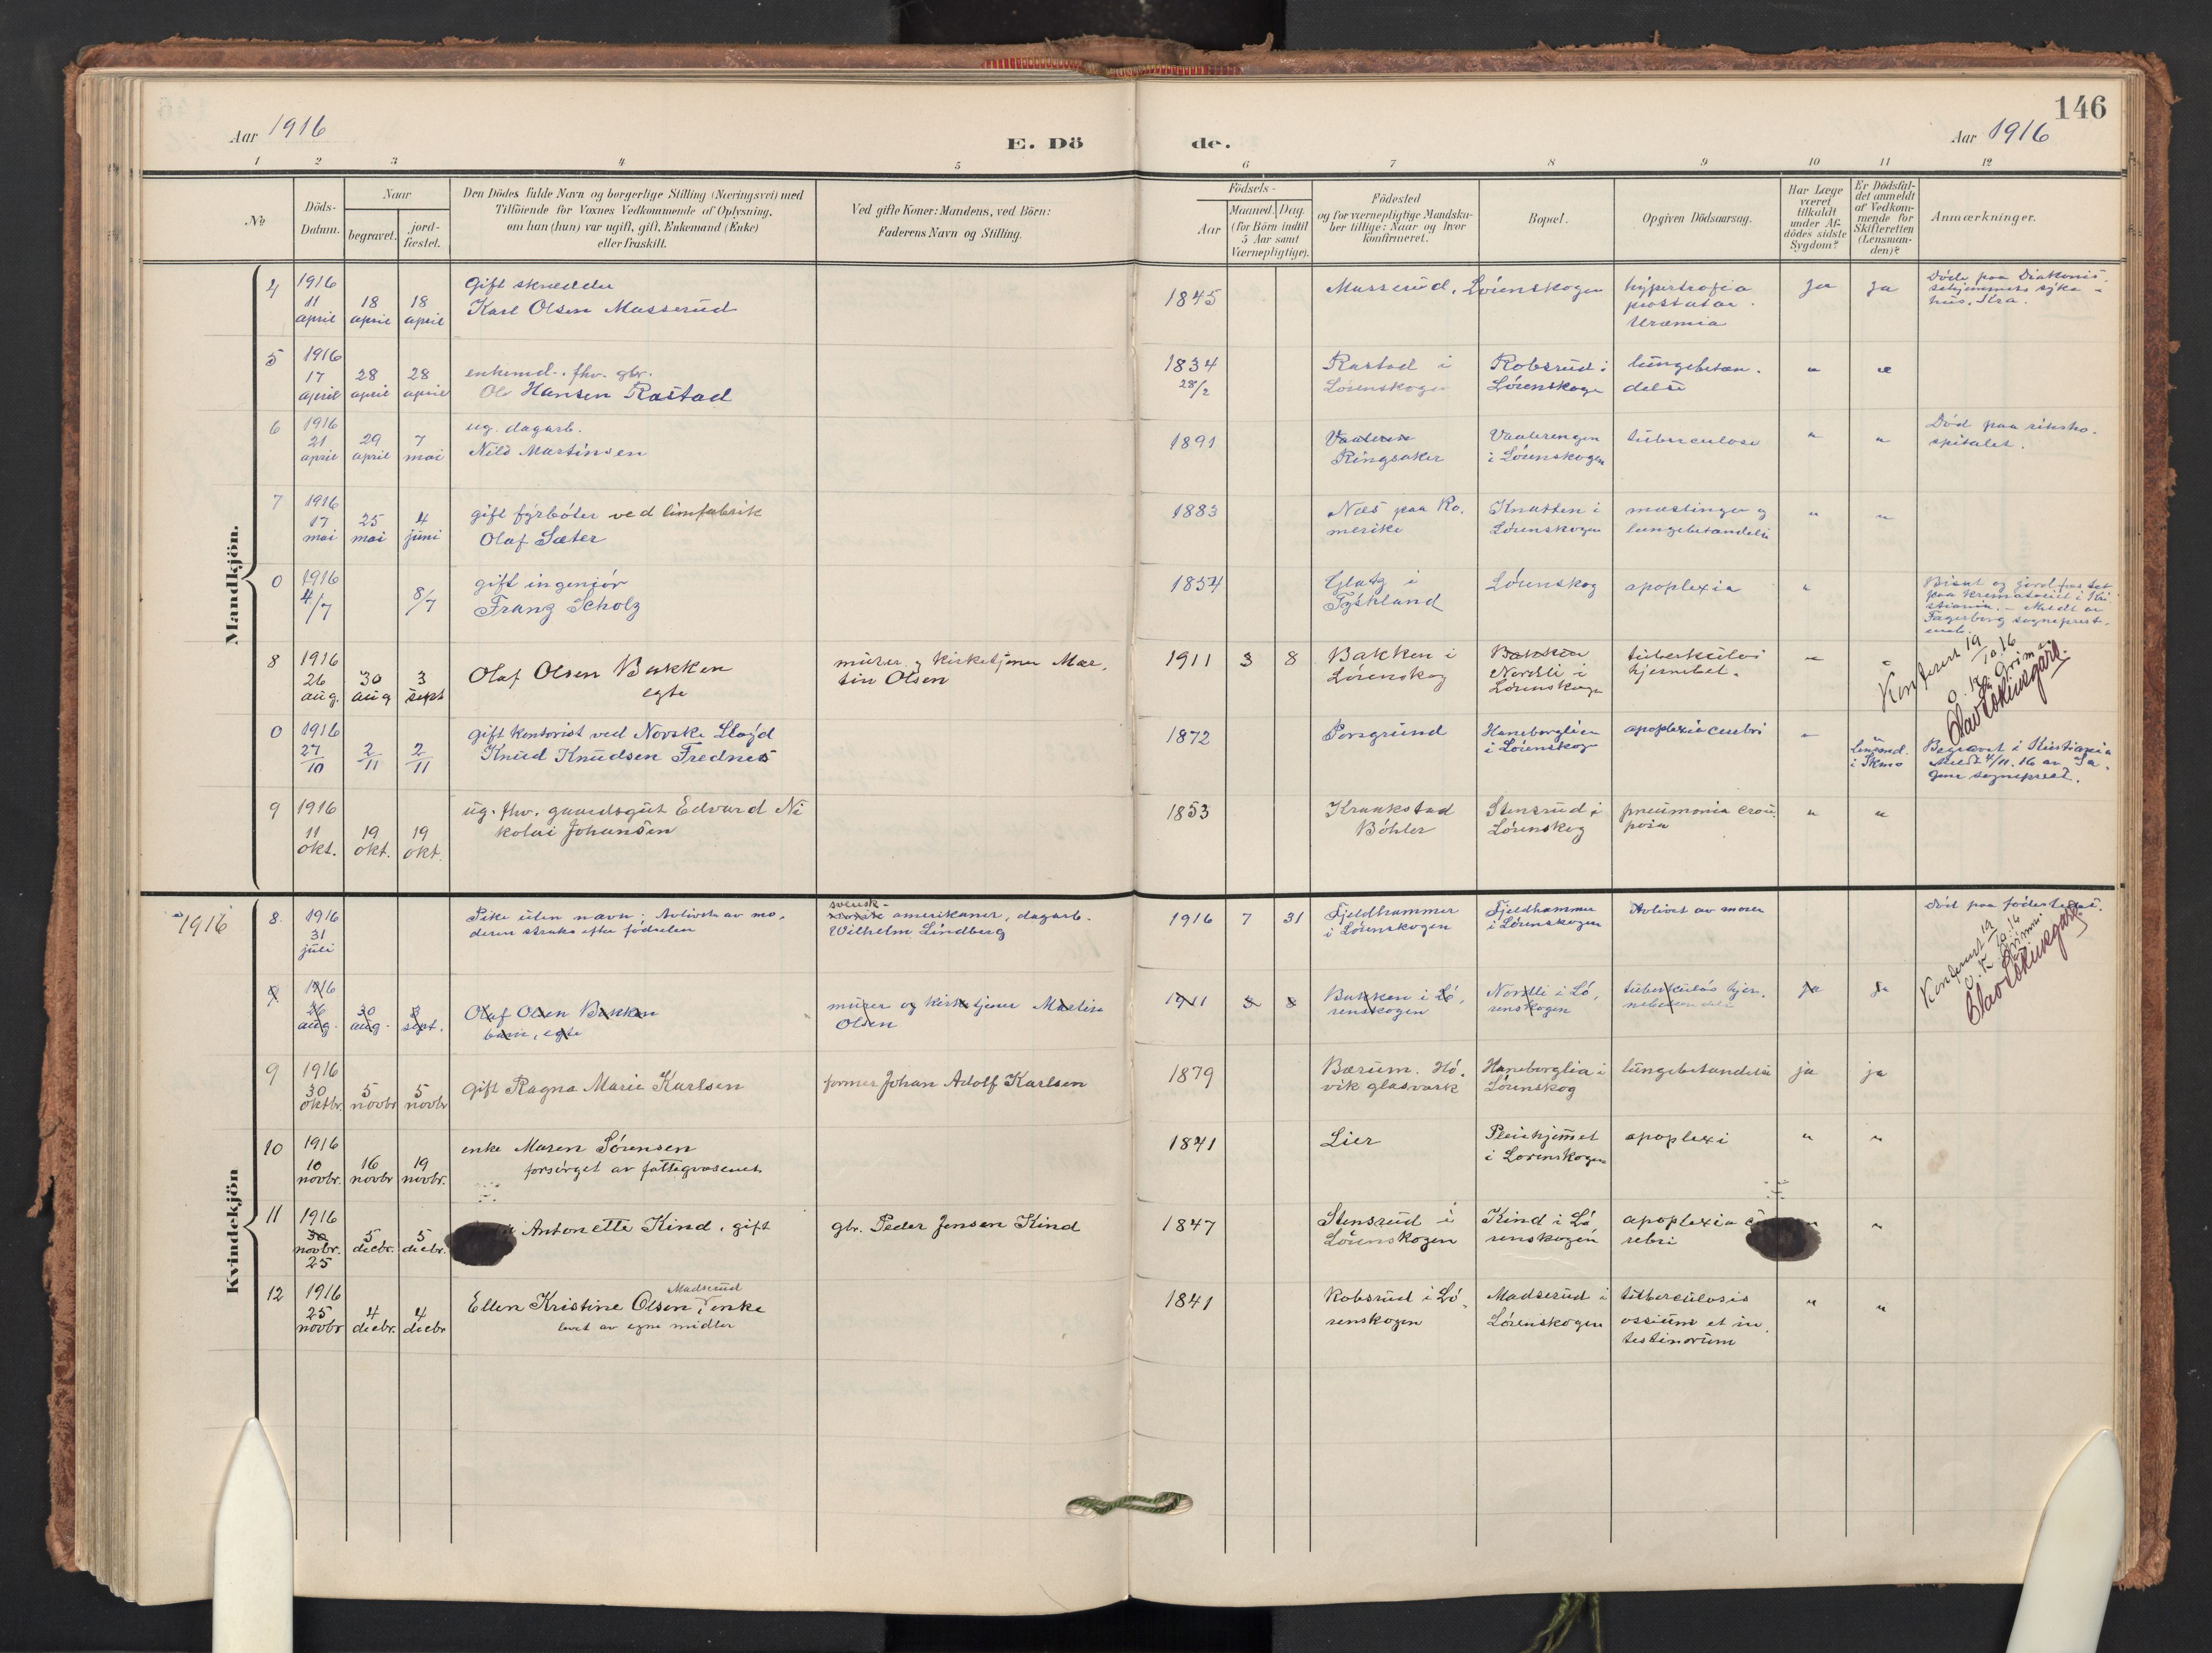 146
Aar 1916
E. Dö de.
Aar 1916
1 2 3 4 5 6 7 8 9 10 11 12
No.
Döds-
Datum.
Naar
begravet.
jord-
fæstet.
Den Dödes fulde Navn og borgerlige Stilling (Næringsvei) med
Tilföiende for Voxnes Vedkommende af Oplysning,
om han (hun) var ugift, gift, Enkemand (Enke)
eller fraskilt.
Ved gifte Koner: Mandens, ved Börn:
Faderens Navn og Stilling.
Födsels-
Aar
Maaned. Dag.
(for Börn indtil
5 Aar samt
Værnepligtige).
Födested
og for værnepligtige Mandska-
ber tillige: Naar og hvor
konfirmeret.
Bopæl.
Opgiven Dödsaarsag.
Har Læge
været
tilkaldt
under Af-
dödes sidste
Sygdom?
Er Dödsfal-
det anmeldt
af Vedkom-
mende for
Skifteretten
(Lensman-
den)?
Anmærkninger.
Mandkjön.
4
1916
11
april
18
april
18
april
Gift skrædder
Karl Olsen Masserud
1845
Masserud, Lørenskogen
hypertrofia
prostatae.
Uræmia
Ja
Ja
Døde paa Diakonis-
sehjemmets syke-
hus, Kra.
5
1916
17
april
28
april
28
april
enkemd. fhv. gbr.
Ole Hansen Rastad
1834
28/2
Rastad i
Lørenskogen
Robsrud i
Lørenskoge
lungebetæn-
delse
"
"
6
1916
21
april
29
april
7
mai
ug. dagarb.
Nils Martinsen
1891
Vaaleren
Ringsaker
Vaalerengen
i Lørenskogen
tuberculose
"
"
Død paa riksho-
spitalet.
7
1916
17
mai
25
mai
4
juni
gift fyrbøter ved limfabrik
Olaf Sæter
1883
Næs paa Ro-
merike
Knatten i
Lørenskogen
mæslinger og
lungebetændelse
"
"
0
1916
4/7
8/7
gift ingeniør
Franz Scholz
1854
Glatz i
Tyskland
Lørenskog
apoplexia
"
Bisat og jordfæstet
paa krematoriet i Kri
stiania. - Meldt av
Fagerborg sogneprest-
emb.
8
1916
26
aug.
30
aug
3
sept
Olaf Olsen Bakken
egte
murer og kirketjener Mar-
tin Olsen
1911 3 8
Bakken i
Lørenskog
Bakken
Nordli i
Lørenskoge
tuberkuløs
hjernebet.
"
"
Konferert 19/10.16
Olav Løkensgard.
0
1916
27
10
2
11
2
11
gift kontorist ved Norske Lloyd
Knud Knudsen Frednes
1872
Porsgrund
Haneborglien
i Lørenskog
apoplexia cerebri
"
"
Lensmd.
i Skmo
Begravet i Kristiania
Meldt 4/11.16 av Sa-
gene sogneprest.
9
1916
11
okt.
19
okt.
19
okt.
ug. fhv. gaardsgut Edvard Ni
kolai Johansen
1853
Kraakstad
Bøhler
Stensrud i
Lørenskog
pneumonia crou-
posa
"
"
Kvindekjön
1916
8.
1916
31
juli
Pike uten navn; Avlivet av mo-
deren straks efter fødselen
svensk-
norsk amerikaner, dagarb.
Wilhelm Lindberg
1916 7 31
Fjeldhammer
i Lørenskogen
Fjeldhammer
i Lørenskogen
Avlivet av moren
Død paa fødestedet.
Konferert 19/10.16
Olav Løkensgard.
9.
1916
26
aug.
30
aug.
3
sept.
Olaf Olsen Bakken
barn, egte
murer og kirketjener Martin
Olsen
1911 3 8
Bakken i Lø-
renskogen
Nordli i Lø-
renskogen
tuberkuløs hjer-
nebetændelse
ja
ja
9
1916
30
oktbr.
5
novbr
5
novbr
gift Ragna Marie Karlsen
former Johan Adolf Karlsen
1879
Bærum. Hø-
vik glasværk
Haneborglia i
Lørenskog
lungebetændelse
ja
ja
10
1916
10
novbr.
16
novbr
19
novbr.
enke Maren Sørensen
forsørget av fattigvæsenet
1841
Lier
Pleiehjemmet
i Lørenskogen
apoplexi
"
"
11
1916
30
novbr.
25
5
decbr.
5
decbr.
Antonette Kind, gift
gbr. Peder Jensen Kind
1847
Stensrud i
Lørenskogen
Kind i Lø-
renskogen
apoplexia ce
rebri
"
12
1916
25
novbr
4
decbr.
4
decbr
Madserud
Ellen Kristine Olsen, enke
levet av egne midler
1841
Robsrud i Lø-
renskogen
Madserud i
Lørenskogen
tuberculosis
ossium et in-
testinorum
"
"